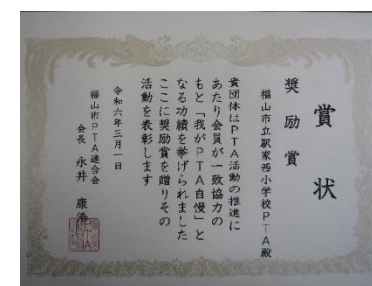 賞状
奨励賞
福山市立駅家西小学校PTA殿
貴団体はPTA活動の推進に
あたり会員が一致協力の
もと「我がPTA自慢」と
なる功績を挙げられました
ここに奨励賞を贈りその
活動を表彰します
令和六年三月一日
福山市PTA連合会
会長 永井 康浩